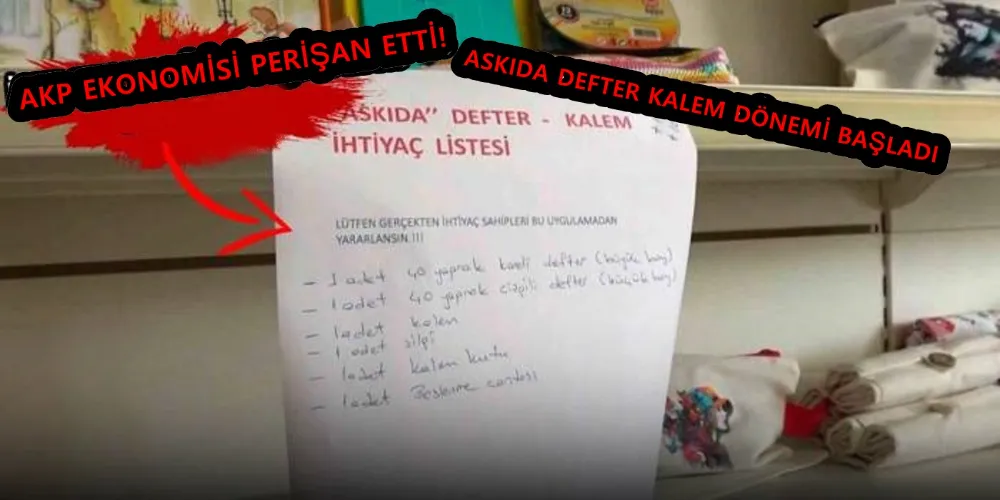 AKP EKONOMİSİ PERİŞAN ETTİ!
ASKIDA DEFTER KALEM DÖNEMİ BAŞLADI
"ASKIDA" DEFTER - KALEM
İHTİYAÇ LİSTESİ
LÜTFEN GERÇEKTEN İHTİYAÇ SAHİPLERİ BU UYGULAMADAN
YARARLANSIN.!!!
- 1 adet 40 yaprak kareli defter (büyük boy)
- 1 adet 40 yaprak çizgili defter (küçük boy)
- 1 adet kalem
- 1 adet silgi
- 1 adet kalem kutu
- 1 adet Beslenme çantası